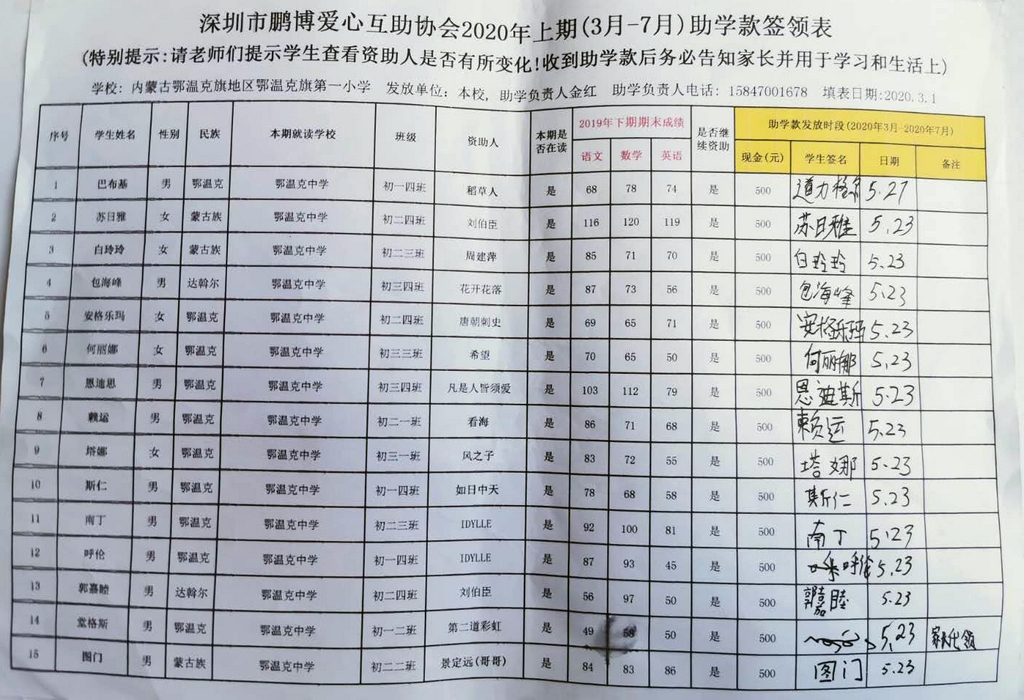 深圳市鹏博爱心互助协会2020年上期(3月-7月)助学款签领表
(特别提示:请老师们提示学生查看资助人是否有所变化!收到助学款后务必告知家长并用于学习和生活上)
学校: 内蒙古鄂温克旗地区鄂温克旗第一小学 发放单位: 本校, 助学负责人金红 助学负责人电话: 15847001678 填表日期:2020.3.1
序号 学生姓名 性别 民族 本期就读学校 班级 资助人 本期是否在读 2019年下期期末成绩 是否继续资助 助学款发放时段(2020年3月-2020年7月)
语文 数学 英语 现金(元) 学生签名 日期 备注
1 巴布基 男 鄂温克 鄂温克中学 初一四班 稻草人 是 68 78 74 是 500 道力格尔 5.27
2 苏日雅 女 蒙古族 鄂温克中学 初二四班 刘伯臣 是 116 120 119 是 500 苏日雅 5.23
3 白玲玲 女 蒙古族 鄂温克中学 初二三班 周建萍 是 85 71 70 是 500 白玲玲 5.23
4 包海峰 男 达斡尔 鄂温克中学 初三四班 花开花落 是 87 73 56 是 500 包海峰 5.23
5 安格乐玛 女 鄂温克 鄂温克中学 初二四班 唐朝刺史 是 69 65 71 是 500 安格乐玛 5.23
6 何丽娜 女 鄂温克 鄂温克中学 初三三班 希望 是 70 65 50 是 500 何丽娜 5.23
7 恩迪思 男 鄂温克 鄂温克中学 初三四班 凡是人皆须爱 是 103 112 79 是 500 恩迪斯 5.23
8 赖运 男 鄂温克 鄂温克中学 初二一班 看海 是 86 71 68 是 500 赖运 5.23
9 塔娜 女 鄂温克 鄂温克中学 初三一班 风之子 是 83 72 55 是 500 塔娜 5.23
10 斯仁 男 鄂温克 鄂温克中学 初一四班 如日中天 是 78 68 58 是 500 斯仁 5.23
11 南丁 男 鄂温克 鄂温克中学 初二三班 IDYLLE 是 92 100 81 是 500 南丁 5.23
12 呼伦 男 鄂温克 鄂温克中学 初一四班 IDYLLE 是 87 93 45 是 500 呼伦 5.23
13 郭嘉睦 男 达斡尔 鄂温克中学 初二四班 刘伯臣 是 56 97 50 是 500 郭嘉睦 5.23
14 堂格斯 男 鄂温克 鄂温克中学 初一二班 第二道彩虹 是 49 58 50 是 500 5.23 家长代领
15 图门 男 蒙古族 鄂温克中学 初二二班 景定远(哥哥) 是 84 83 86 是 500 图门 5.23